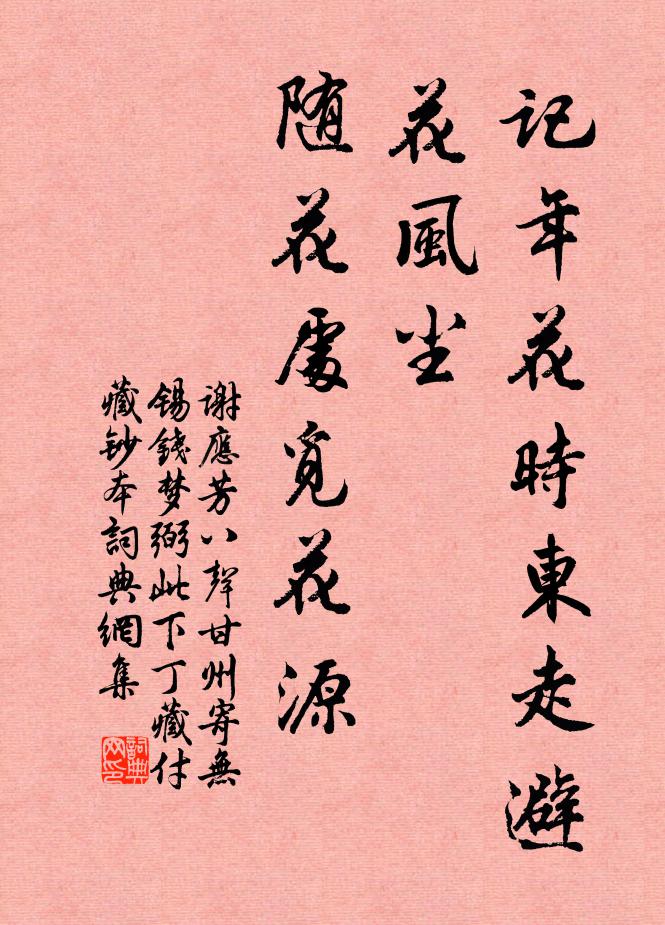 記年花時東走避
花風尘
随花處覓花源
谢應芳八聲甘州寄無
锡錢梦弼此下丁藏付
藏钞本詞典網集
詞典
网印